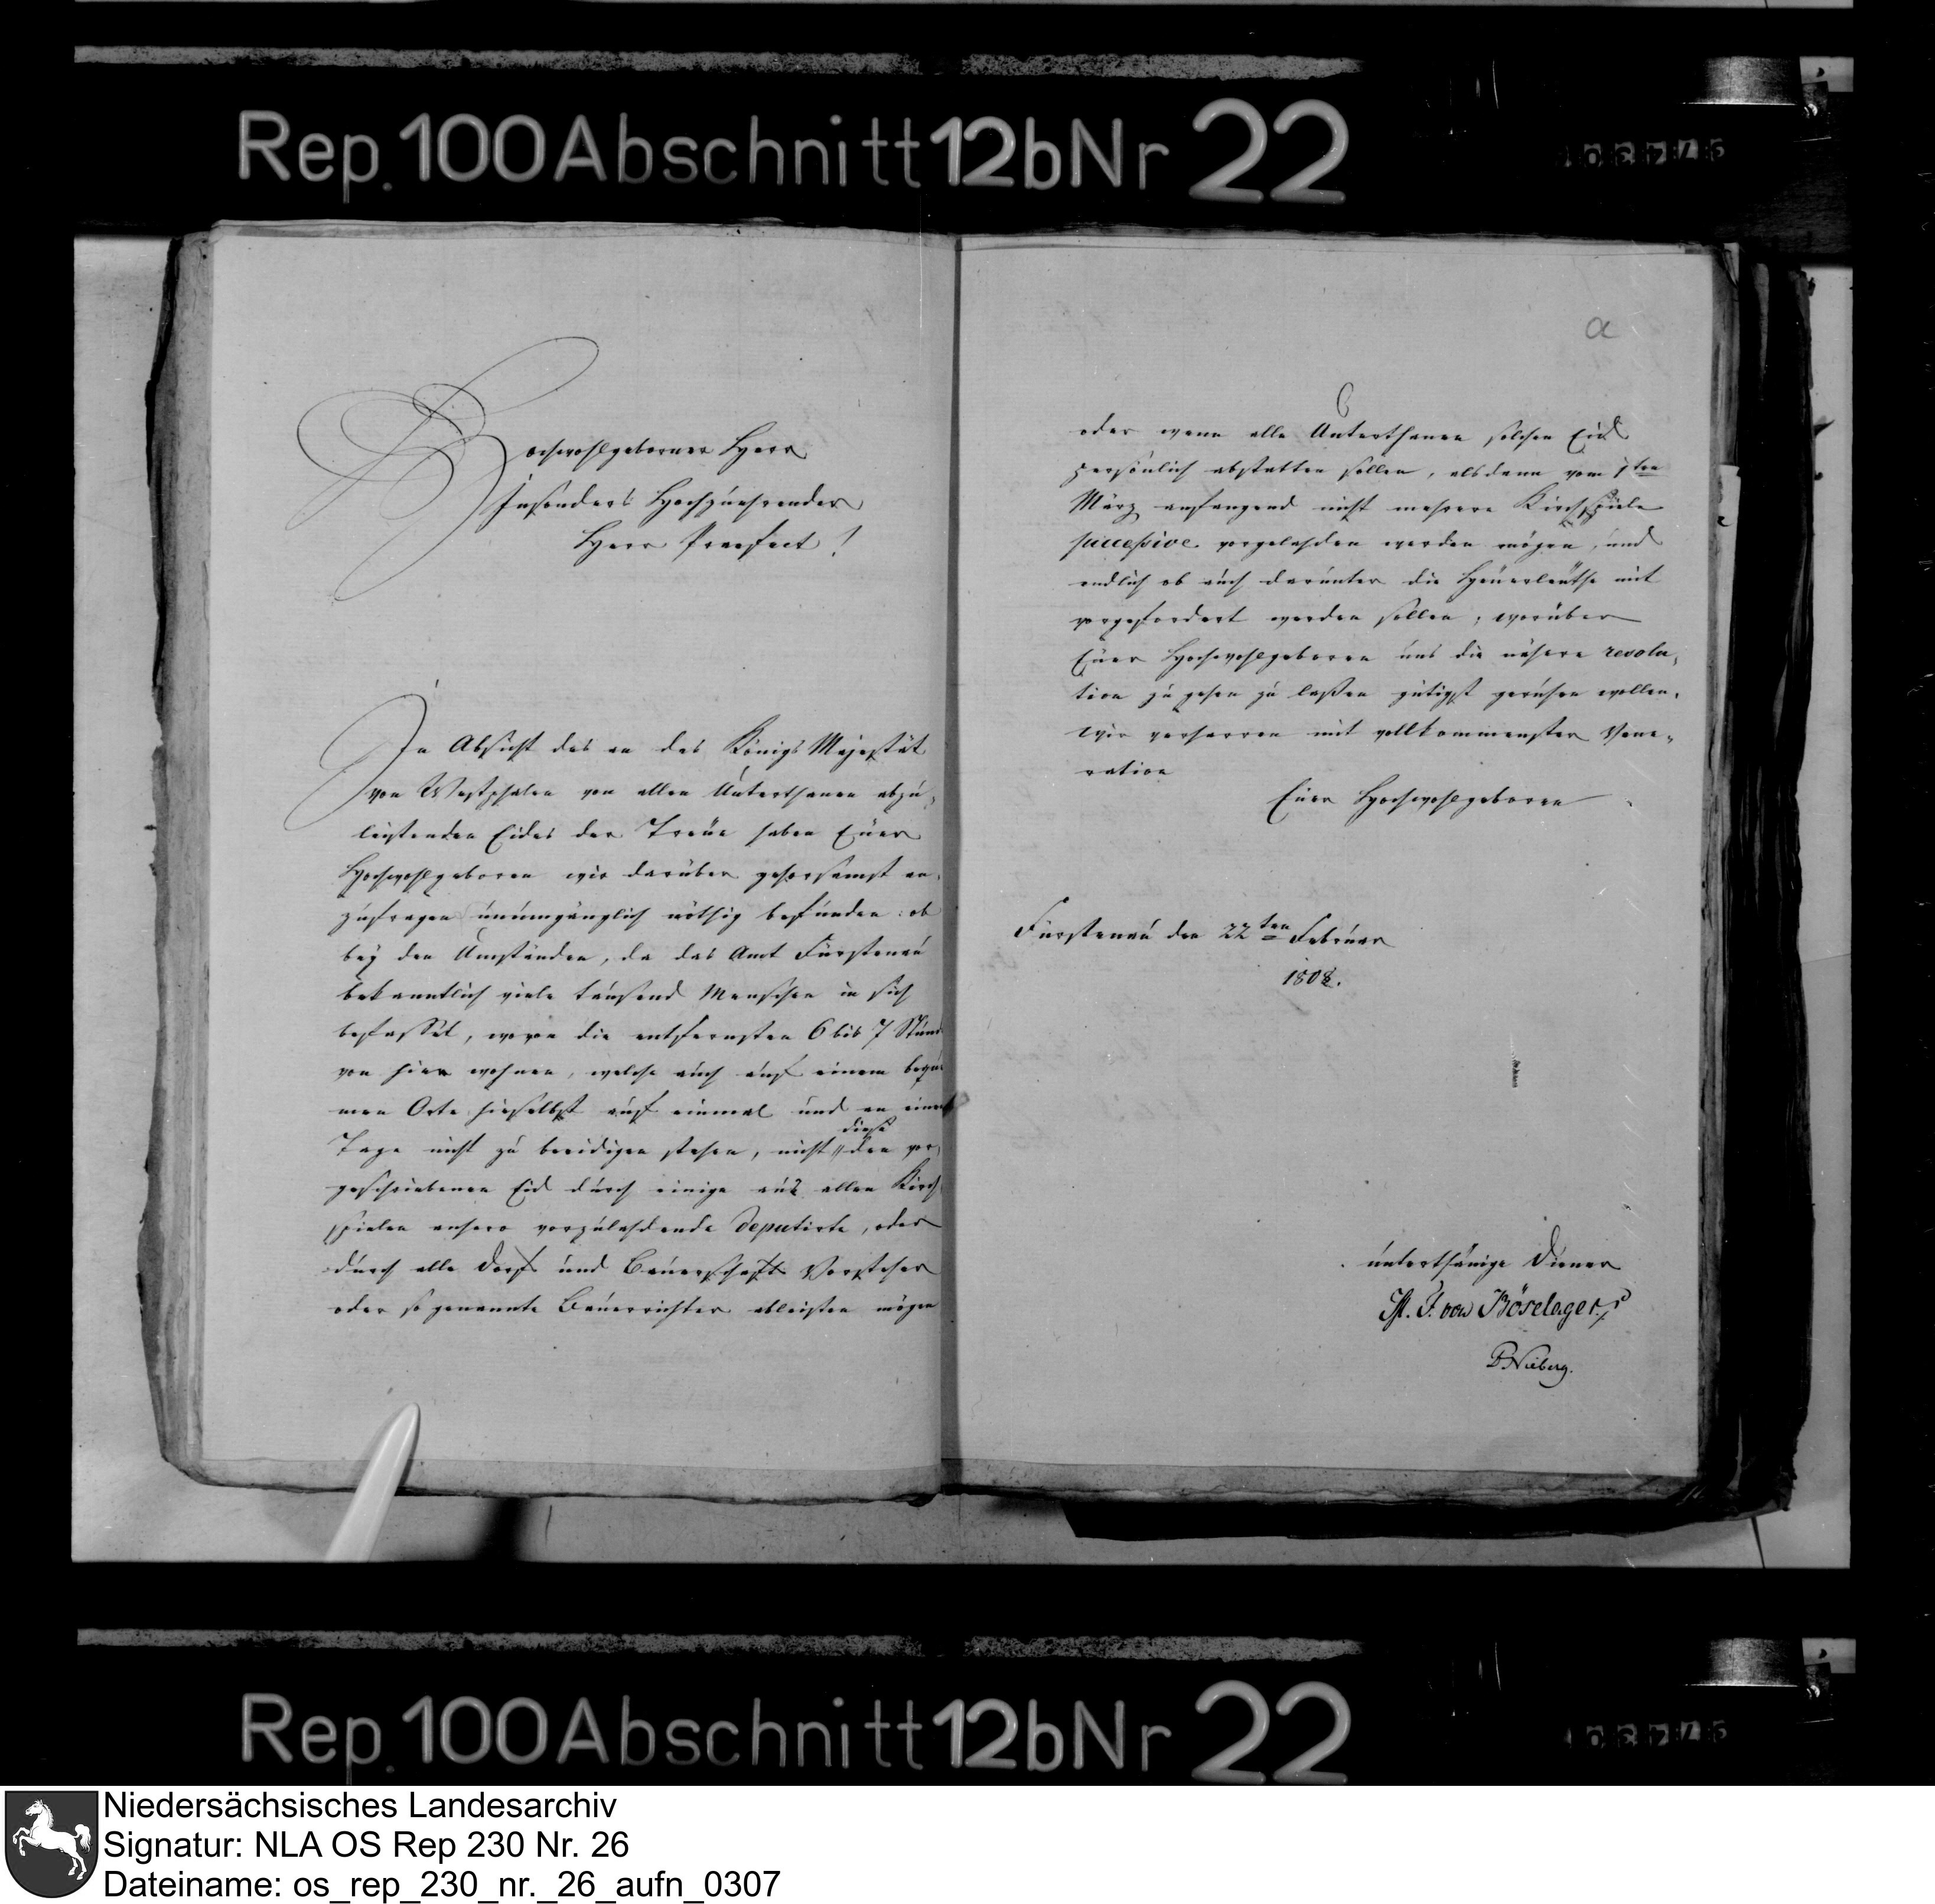 Rep. 100 Abschnitt 12b Nr 22
Hochwohlgeborner Herr
Insonders Hochzuehrender
Herr Praefect!
In Absicht des an des Königs Majestät
von Westphalen von allen Unterthanen abzu„
leistenden Eides der Treüe haben Euer
Hochwohlgeboren wir darüber gehorsamst an„
zufragen unumgänglich nöthig befunden: ob
bey den Umständen, da das Amt Fürstenau
bekanntlich viele tausend Menschen in sich
befasset, wovon die entfernsten 6 bis 7 Stund
von hier wohnen, welche auch auf einem bequ
men Orte hieselbst auf einmal und an einem
Tage nicht zu beeidigen stehen, nicht diese den vor
geschriebenen Eid durch einige aus allen Kirch
spielen anhero vorzulahdende Deputirte, oder
durch alle Dorf und Bauerschafts Vorsteher
oder so genannte Bauerrichter ableisten mögen
a
oder wenn alle Unterthanen solchen Eid
persönlich abstatten sollen, alsdann vom 1ten
März anfangend nicht mehrere Kirchspiele
successive vorgelahden werden mögen, und
endlich ob auch darunter die Heüerleüthe mit
vorgefordert werden sollen; worüber
Euer Hochwohlgeboren uns die nähere resolu„
tion zu gehen zu laßen gütigst geruhen wollen.
Wir verharren mit vollkommenster Vene„
ration
Euer Hochwohlgeboren
Fürstenau den 22ten Februar
1808.
unterthänige Diener
F. von Böselager
Nieberg.
Rep. 100 Abschnitt 12b Nr 22
Niedersächsisches Landesarchiv
Signatur: NLA OS Rep 230 Nr. 26
Dateiname: os_rep_230_nr._26_aufn_0307